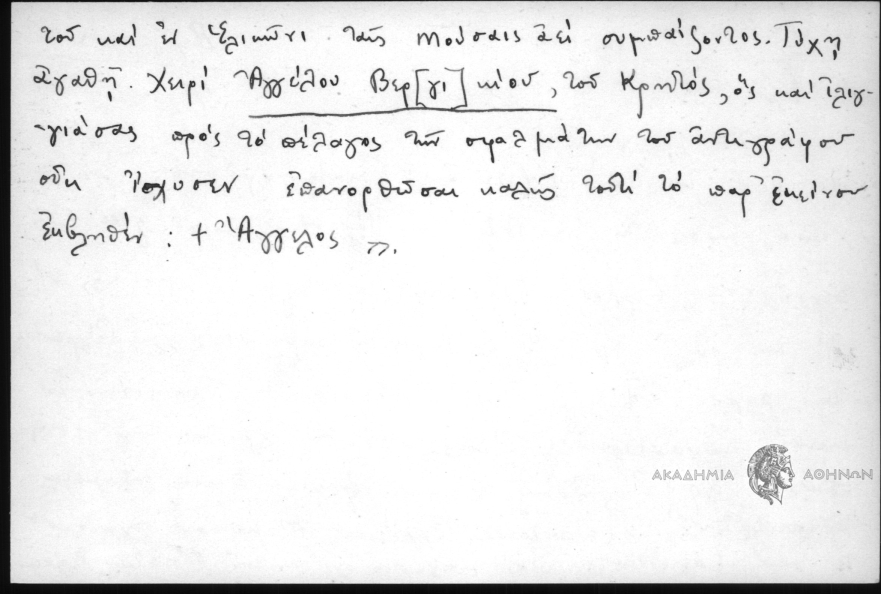 τοῦ καὶ ἐν Ἑλικῶνι ταῖς Μούσαις ἀεὶ συμπαίζοντος. Τύχῃ
ἀγαθῇ. Χειρὶ Ἀγγέλου Βερ[γι]κίου, τοῦ Κρητός, ὃς καὶ ἰλιγ-
-γιάσας πρὸς τὸ πέλαγος τῶν σφαλμάτων τοῦ ἀντιγράφου
οὐκ ἴσχυσεν ἐπανορθῶσαι καλῶς τουτὶ τὸ παρ' ἐκείνου
ἐκβληθέν : + Ἄγγελος
ΑΚΑΔΗΜΙΑ ΑΘΗΝΩΝ